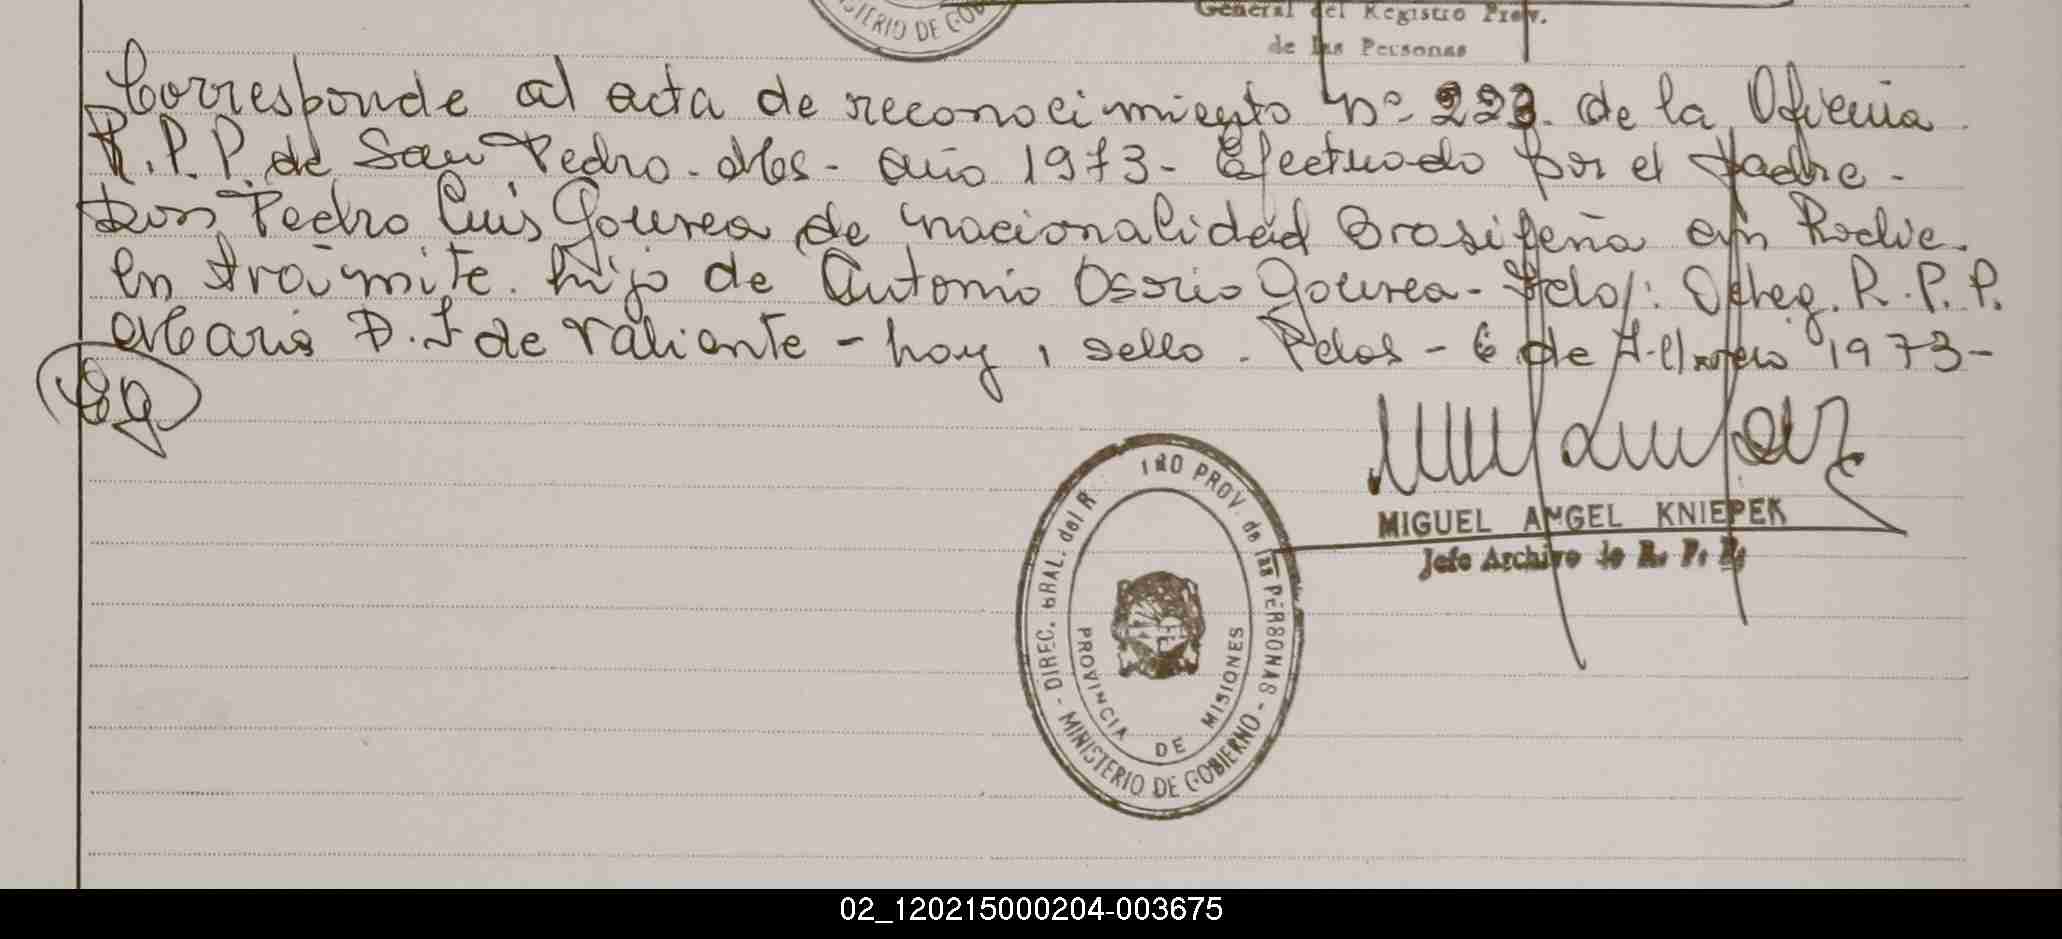 General del Registro Prov.
de las Personas
MINISTERIO DE GOB
Corresponde al acta de reconocimiento nº 223. de la Oficina
R.P.P. de San Pedro - Mes - año 1973 - Efectuado por el Padre -
Don Pedro Luis Gourea de nacionalidad Brasileña
en trámite. hijo de Antonio Osorio Gourea - Fdo/: R.P.P.
Maria D. F de Valiente - hay, sello. Pdas - 6 de 1973 -
MIGUEL ANGEL KNIEPEK
Jefe Archivo de R. P. P.
DIREC. GRAL. del R PROV. de las PERSONAS - MINISTERIO DE GOBIERNO -
PROVINCIA DE MISIONES
02_120215000204-003675